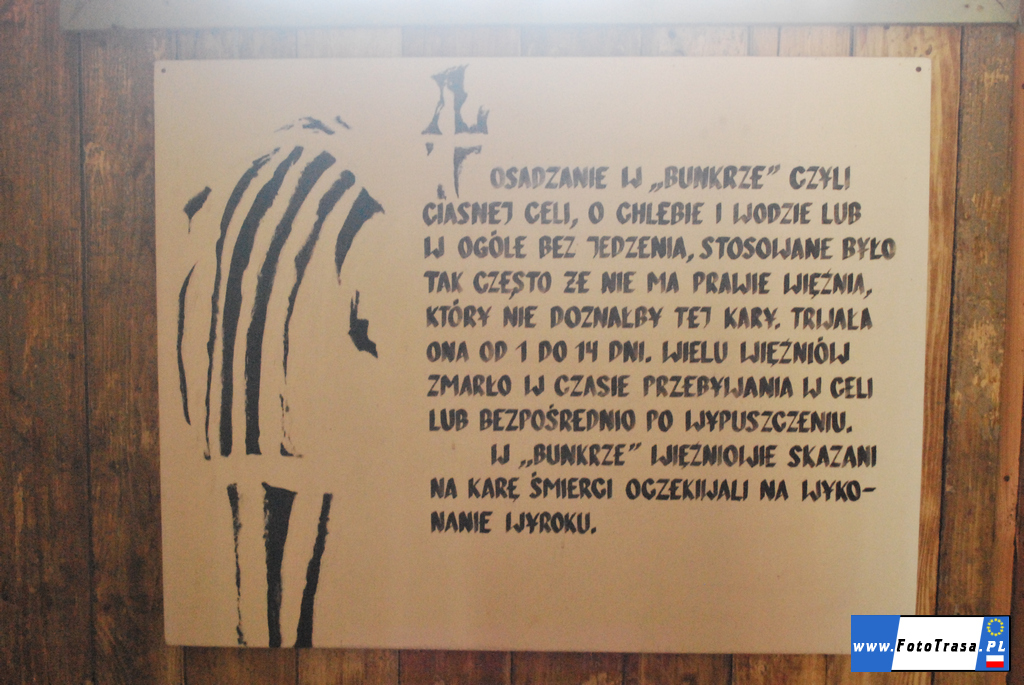 OSADZANIE W „BUNKRZE” CZYLI
CIASNEJ CELI, O CHLEBIE I WODZIE LUB
W OGÓLE BEZ JEDZENIA, STOSOWANE BYŁO
TAK CZĘSTO ZE NIE MA PRAWIE WIĘŹNIA,
KTÓRY NIE DOZNAŁBY TEJ KARY. TRWAŁA
ONA OD 1 DO 14 DNI. WIELU WIĘŹNIÓW
ZMARŁO W CZASIE PRZEBYWANIA W CELI
LUB BEZPOŚREDNIO PO WYPUSZCZENIU.
W „BUNKRZE” WIĘŹNIOWIE SKAZANI
NA KARĘ ŚMIERCI OCZEKIWALI NA WYKO-
NANIE WYROKU.
www.FotoTrasa.PL